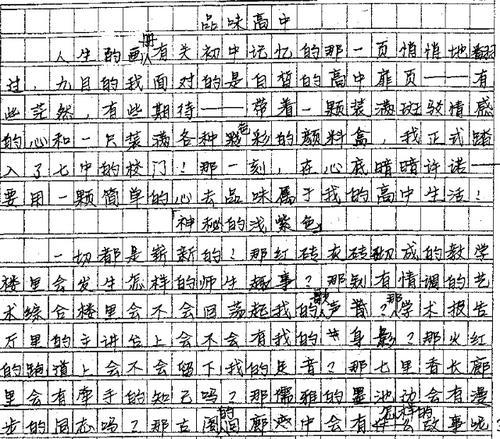 品味高中
人生的画册有关初中记忆的那一页悄悄地翻
过，九月的我面对的是自暂的高中扉页——有
些茫然，有些期待——带着一颗装满斑驳情感
的心和一只装满各种色彩的颜料盒，我正式踏
入了七中的校门！那一刻，在心底暗暗许诺——
要用一颗简单的心去品味属于我的高中生活！
「神秘的浅紫色」
一切都是崭新的！那红砖灰砖砌成的教学
楼里会发生怎样的师生趣事？那别有情调的艺
术综合楼里会不会回荡起我的歌声？那学术报告
厅里的主讲台上会不会有我的身影？那火红
的跑道上会不会留下我的足音？那七里香长廊
里会有牵手的知己吗？那儒雅的墨池边会有漫
步的同志吗？那古的廊庑中会有怎样的故事呢